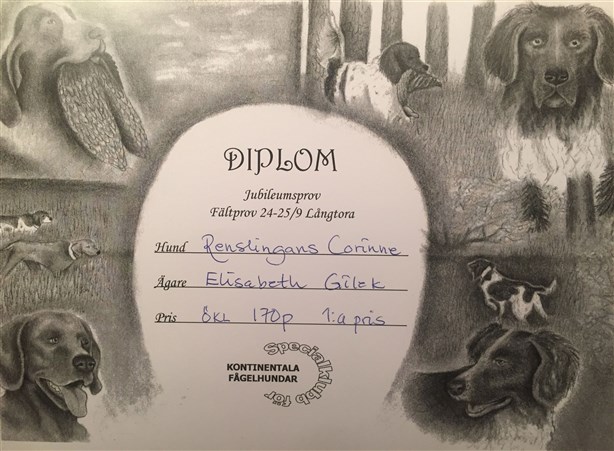 DIPLOM
Jubileumsprov
Fältprov 24-25/9 Långtora
Hund Renslingans Corinne
Ägare Elisabeth Gilek
Pris ökl 170p 1:a pris
Specialklubb för
KONTINENTALA
FÅGELHUNDAR